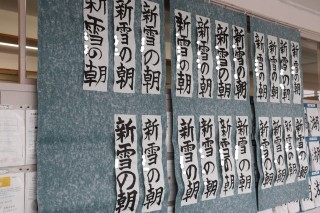 新雪の朝
新雪の朝
新雪の朝
新雪の朝
新雪の朝
新雪の朝
新雪の朝
新雪の朝
新雪の朝
新雪の朝
新雪の朝
新雪の朝
新雪の朝
新雪の朝
新雪の朝
新雪の朝
新雪の朝
新雪の朝
新雪の朝
新雪の朝
新雪の朝